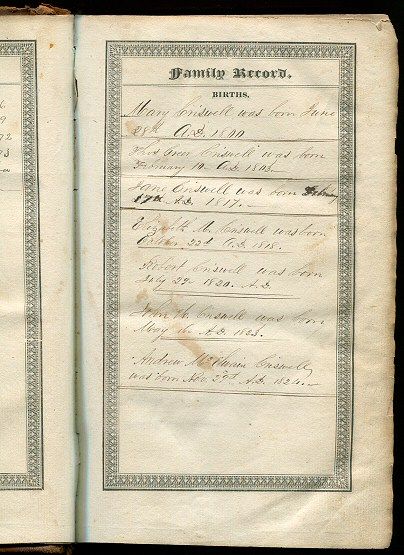 Family Record.
BIRTHS.
Mary Criswell was born June
28th A.D. 1800
Criswell was born
February 10 A.D. 1803
Jane Criswell was born February
17th A.D. 1817.
Elizabeth M. Criswell was born
October 22d A.D. 1818.
Robert Criswell was born
July 22 1820. A.D.
John Criswell was born
May 16 A.D. 1823.
Andrew McElwain Criswell
was born Nov. 29th A.D. 1824.